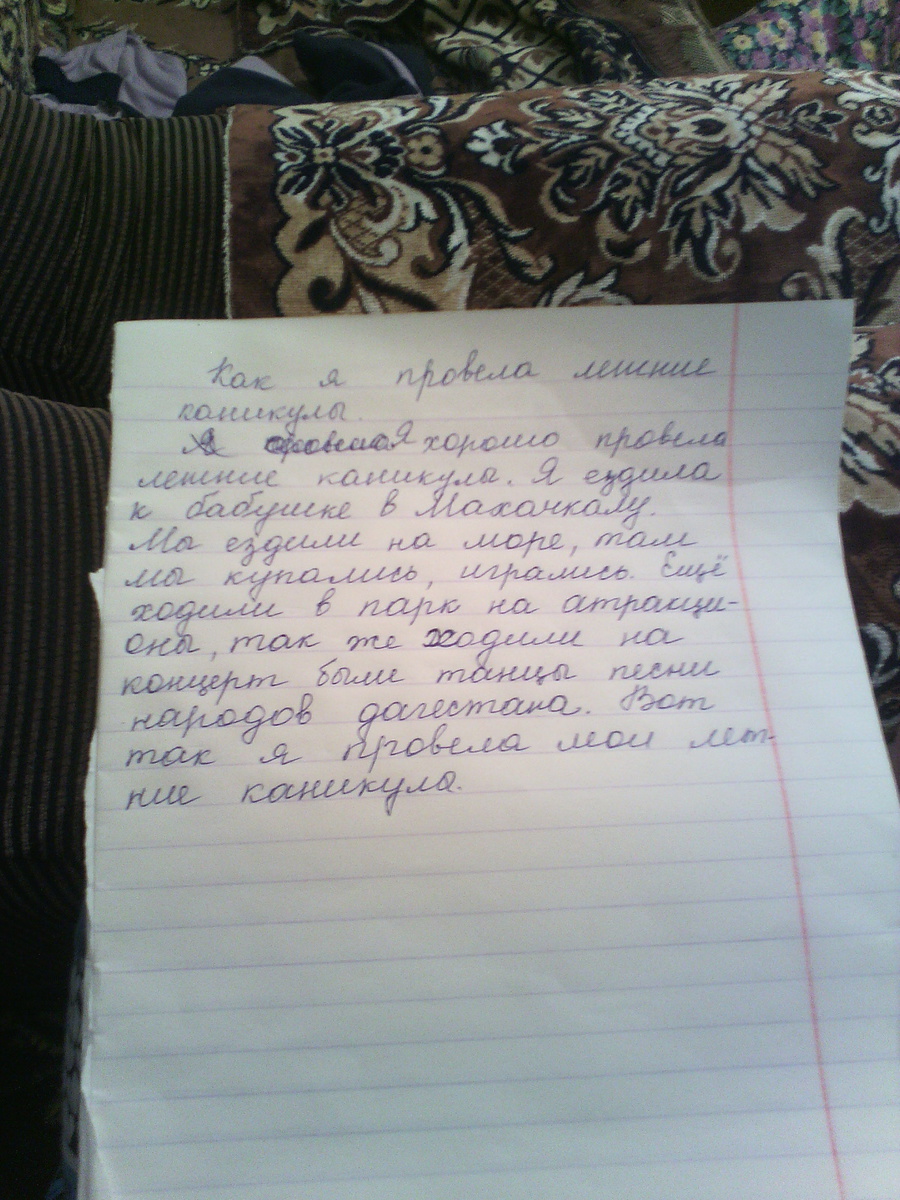 Как я провела летние
каникулы.
Я провела Я хорошо провела
летние каникулы. Я ездила
к бабушке в Махачкалу.
Мы ездили на море, там
мы купались, игрались. Ещё
ходили в парк на атракци-
оны, так же ходили на
концерт были танцы песни
народов дагестана. Вот
так я провела мои лет-
ние каникула.